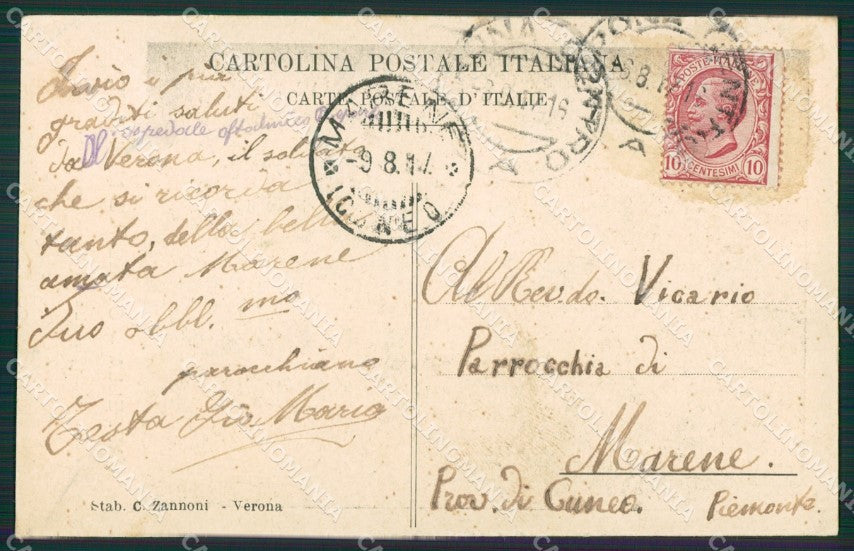 CARTOLINA POSTALE ITALIANA
CARTE POSTALE D'ITALIE
Invio i più
graditi saluti
Al ospedale oftalmico
da Verona, il soldato
che si ricorda
tanto, della bella
amata Marene
Suo obbl.mo
parocchiano
Testa Gio Maria
MARENE
-9.8.17.
(CUNEO)
VERONA
POSTE ITALIANE
10 CENTESIMI 10
Al Revdo. Vicario
Parrocchia di
Marene.
Prov. di Cuneo. Piemonte.
Stab. C. Zannoni - Verona
CARTOLINOMANIA